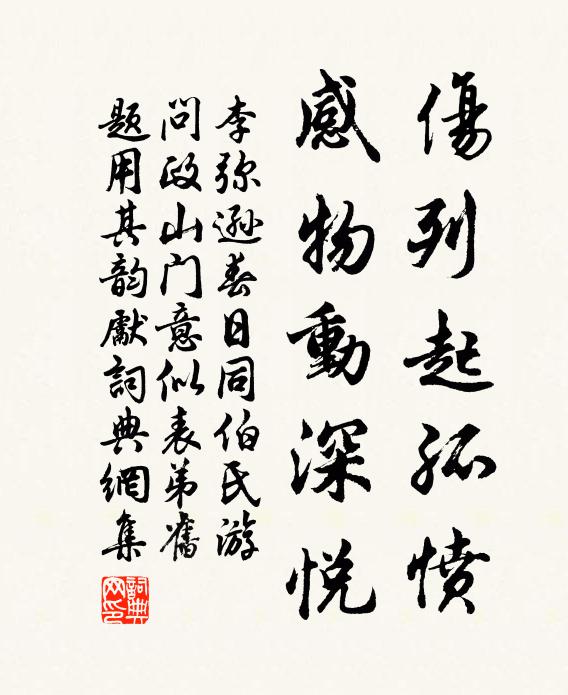 傷列起孤憤
感物動深悦
李弥遜春日同伯氏游
问政山门意似表弟舊
题用其韵獻詞典網集
詞典网印